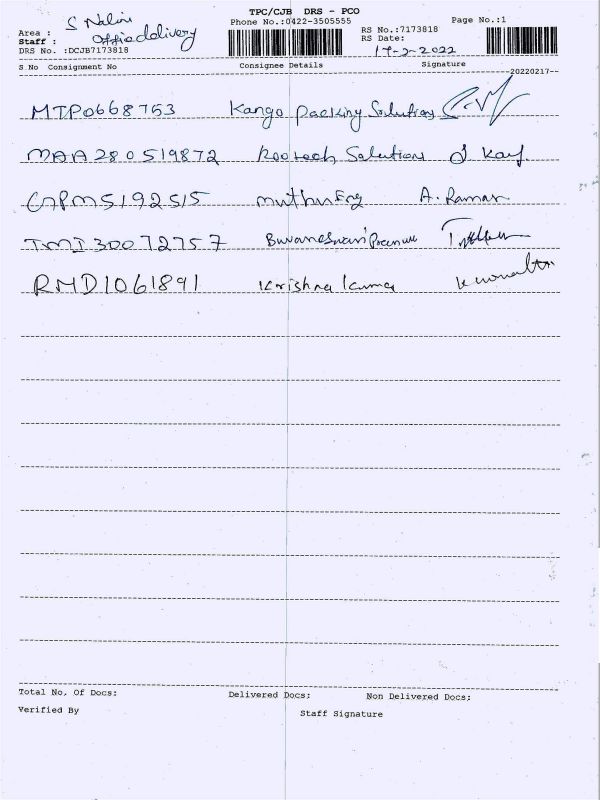 TPC/CJB DRS - PCO
Phone No.:0422-3505555
Page No.:1
Area : S Nalini
Staff : Office delivery
DRS No. :DCJB7173818
RS No.:7173818
RS Date: 17-2-2022
S No Consignment No Consignee Details Signature
20220217
MTP0668753 Kango packing Solutions
MAA280519872 Rootech Solutions
CAPM5192515 muthu Eng A. Raman
TMI30072757
RMD1061891 Krishna Kumar
Total No. Of Docs: Delivered Docs: Non Delivered Docs:
Verified By Staff Signature